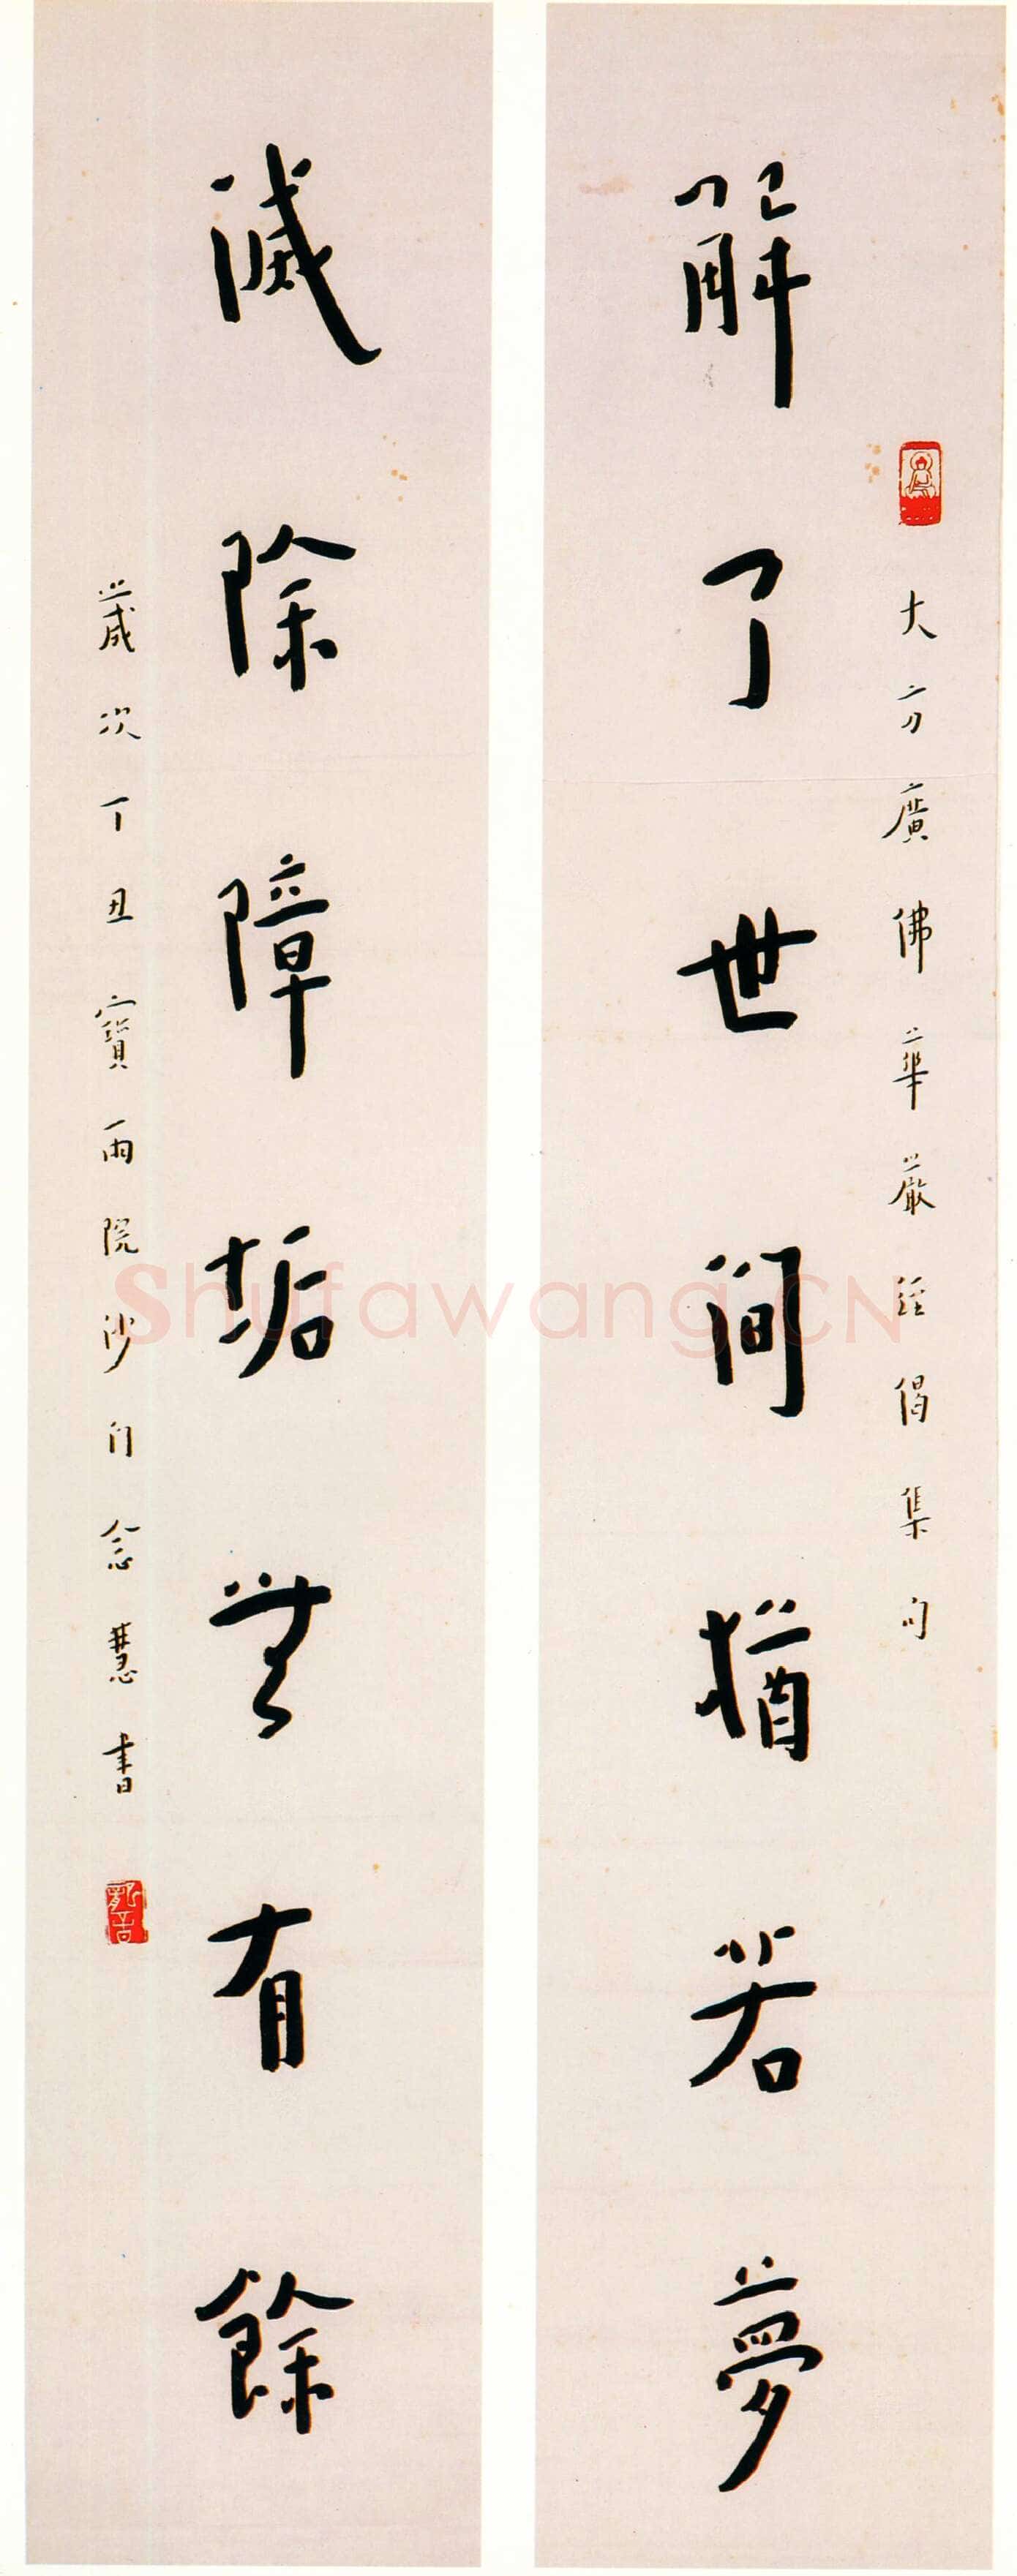 大方廣佛華嚴經偈集句
解了世間猶若夢
滅除障垢無有餘
歲次丁丑寶雨院沙門念慧書
Shufawang.CN